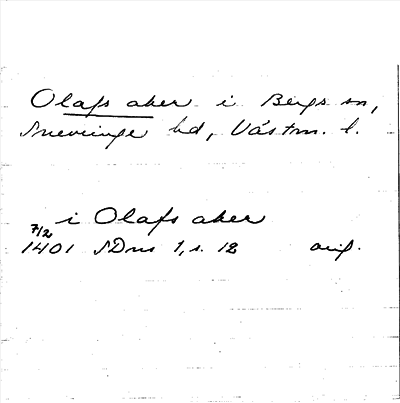 Olafs aker i Bergs sn,
Snevringe hd, Västm. l.
i Olafs aker
7/2
1401 SDns 1, s. 12 orig.